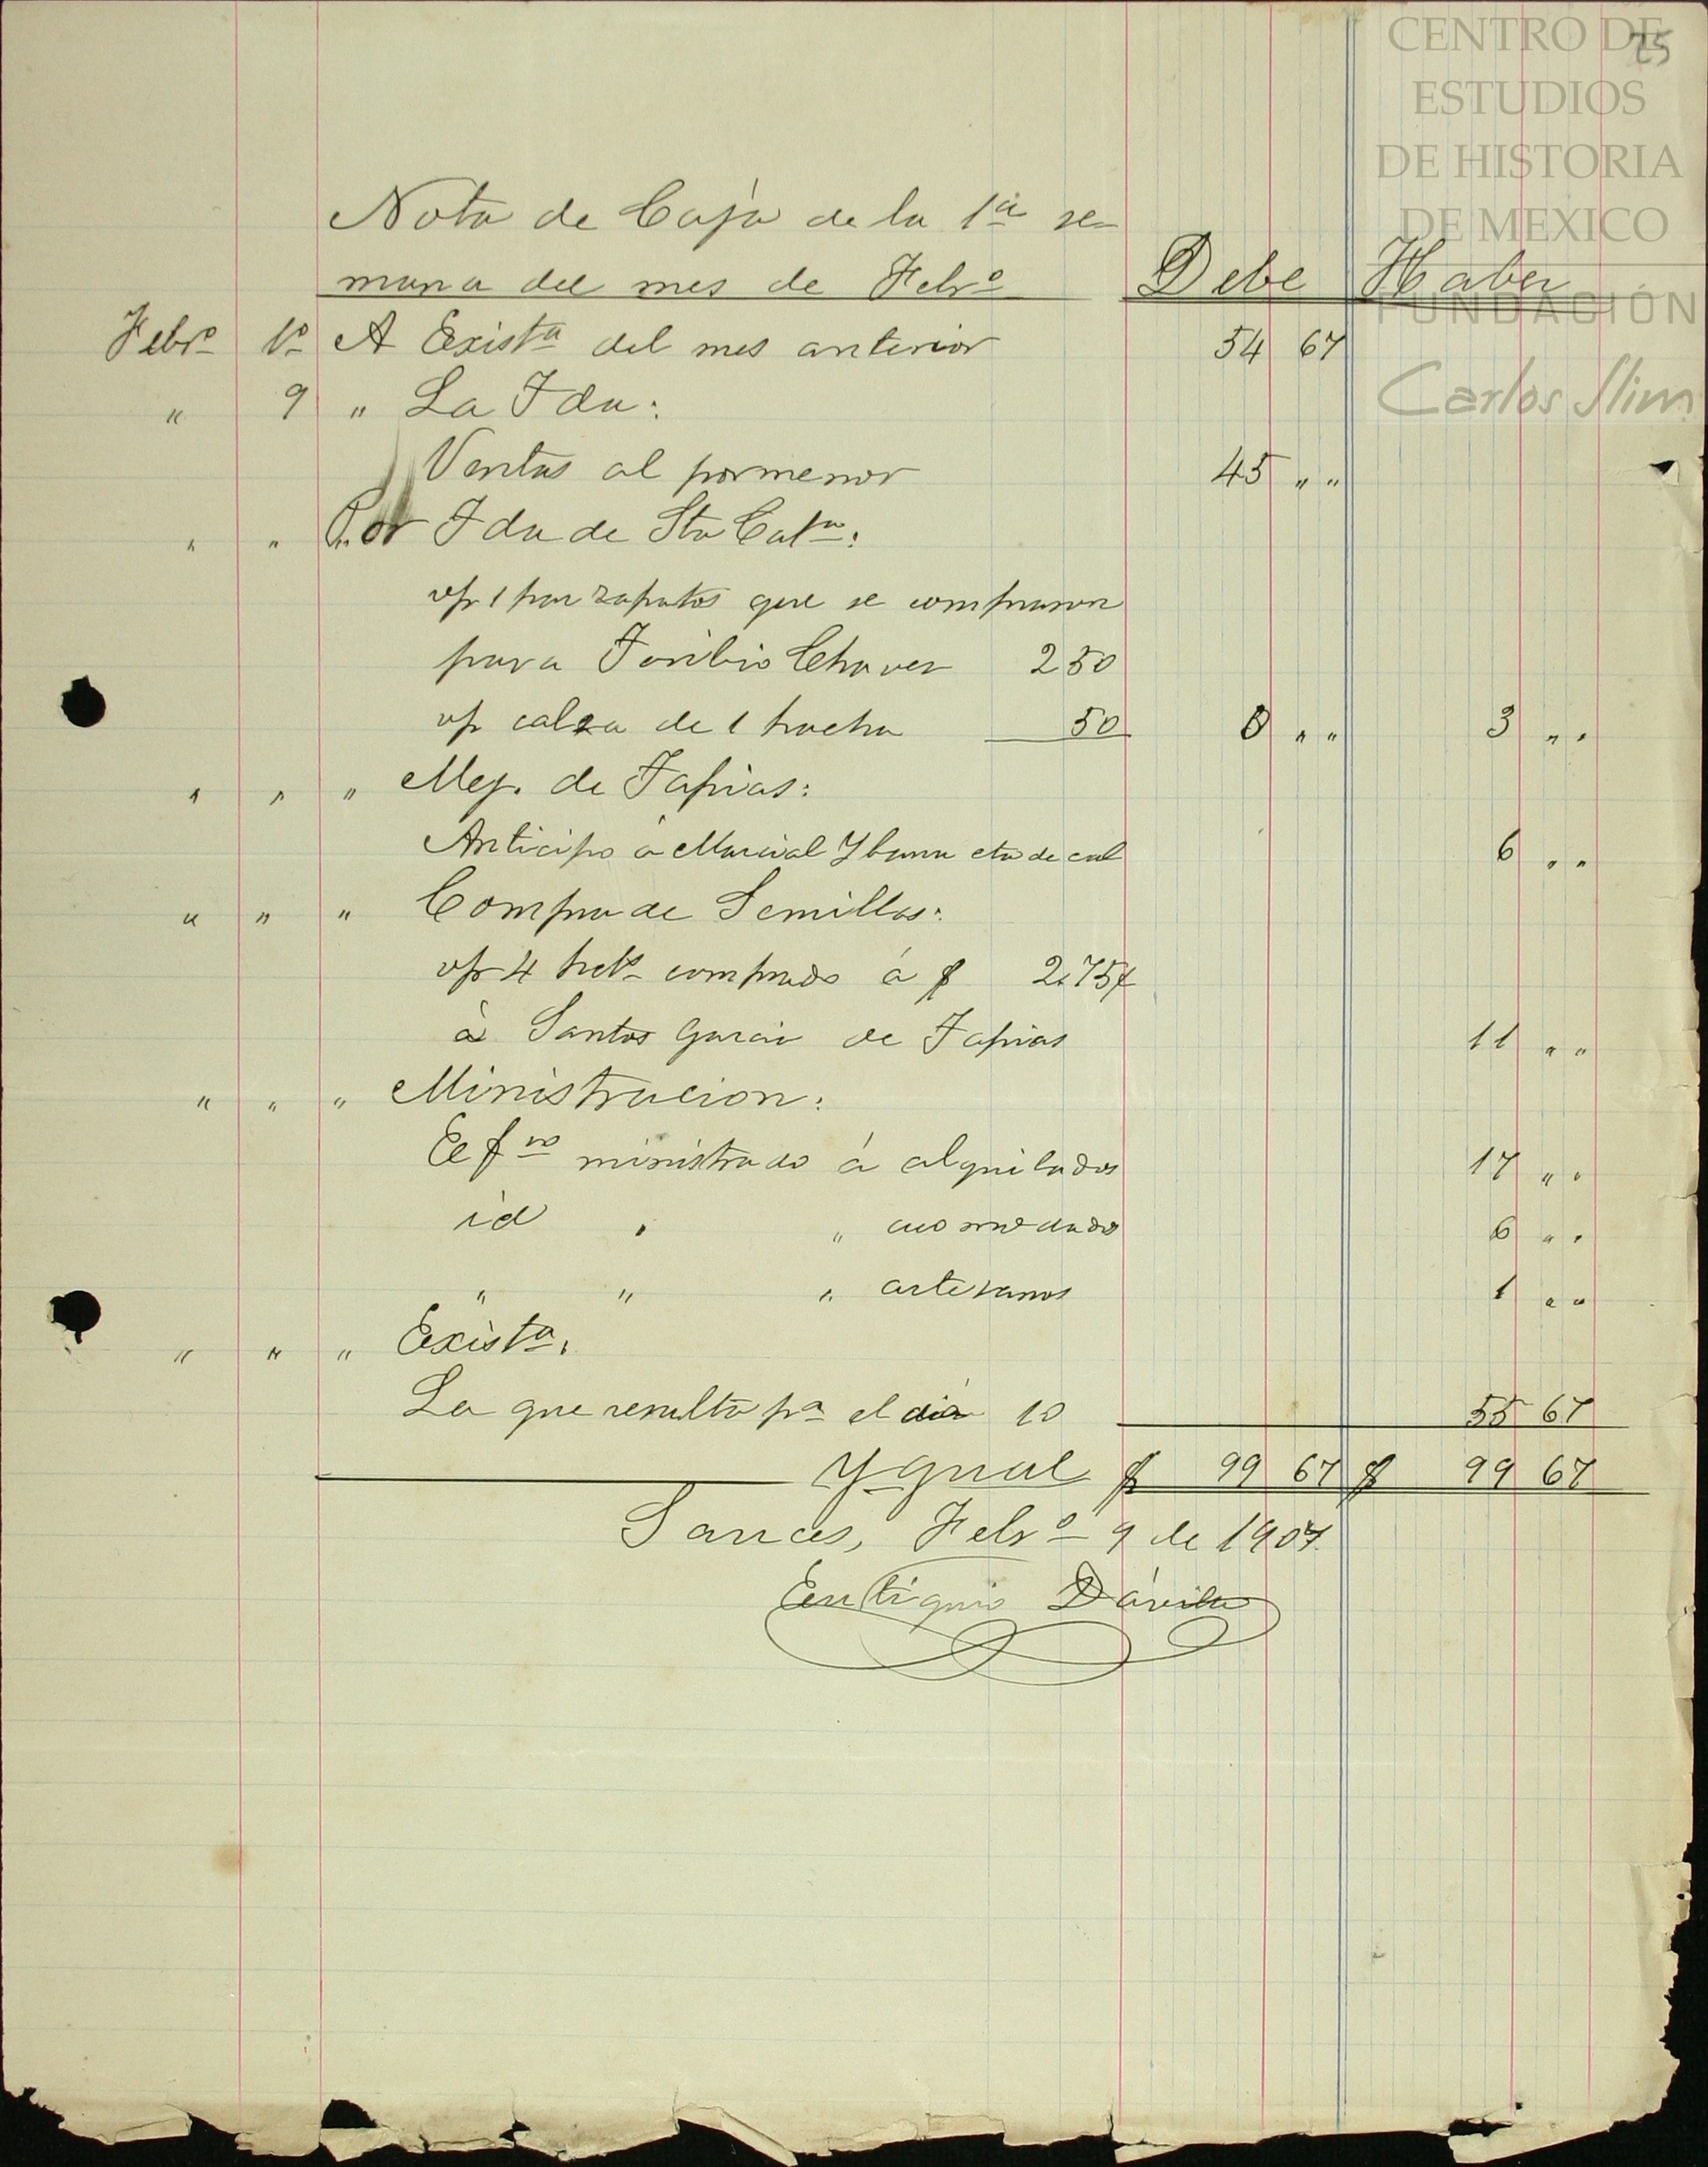 CENTRO DE
ESTUDIOS
DE HISTORIA
DE MEXICO
FUNDACIÓN
Carlos Slim
25
Nota de Caja de la 1ª se-
mana del mes de Febrº Debe Haber
Febrº 1º A Existª del mes anterior 54 67
" 9 " La Fda:
Ventas al pormenor 45 " "
" " Por Fda de Sta Catª:
vp 1 par zapatos que se compraron
para Toribio Chavez 2 50
vp calza de 1 hacha 50 0 " " 3 " "
" " " Mej. de Tapias:
Anticipo a Marcial Ybarra cta de cal 6 " "
" " " Compra de Semillas:
vp 4 hects comprado á $ 2.75¢
á Santos Garcia de Tapias 11 " "
" " " Ministracion:
Efvo ministrado á alquilados 17 " "
id " " acomodados 6 " "
" " " artezanos 1 " "
" " " Existª.
La que resulta pª el dia 10 55 67
Ygual $ 99 67 $ 99 67
Sauces, Febrº 9 de 1907.
Eutiquio Dávila